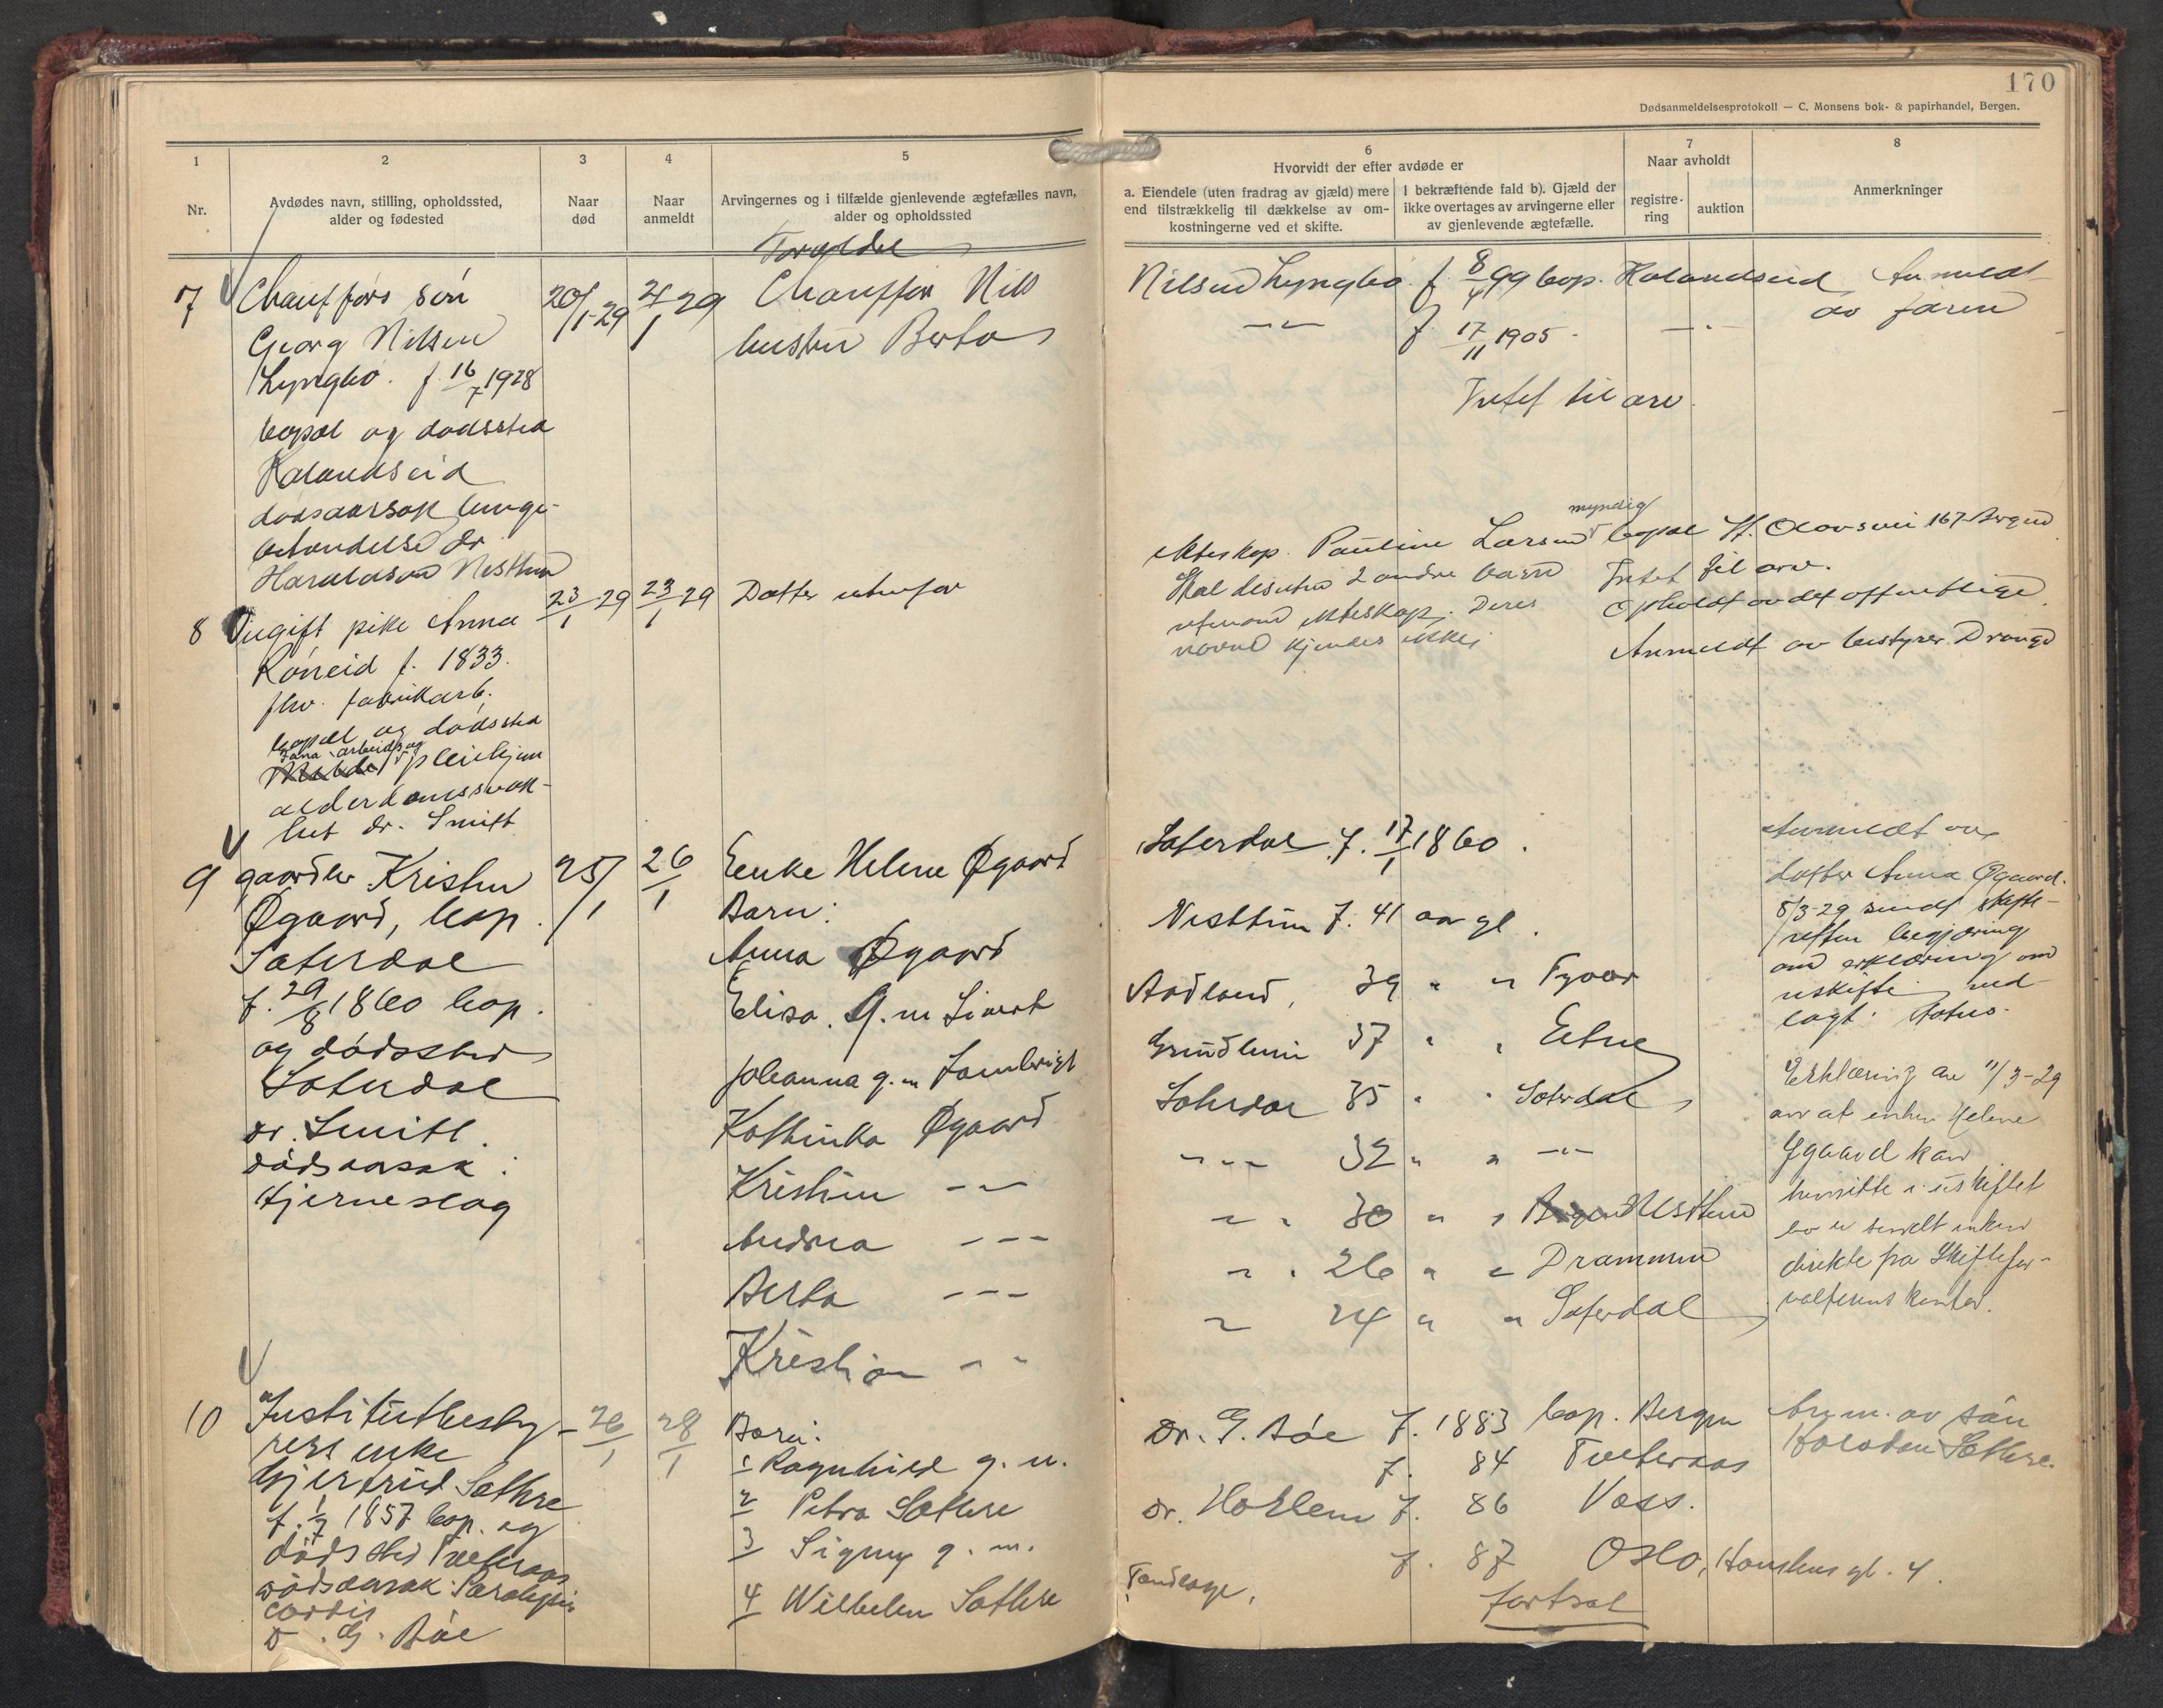 170
Dødsanmeldelsesprotokoll — C. Monsens bok- & papirhandel, Bergen.
1
2
3
4
5
6
7
8
Nr.
Avdødes navn, stilling, opholdssted,
alder og fødested
Naar
død
Naar
anmeldt
Arvingernes og i tilfælde gjenlevende ægtefælles navn,
alder og opholdssted
Hvorvidt der efter avdøde er
a. Eiendele (uten fradrag av gjæld) mere
end tilstrækkelig til dækkelse av om-
kostningerne ved et skifte.
I bekræftende fald b). Gjæld der
ikke overtages av arvingerne eller
av gjenlevende ægtefælle.
Naar avholdt
registre-
ring
auktion
Anmerkninger
7
Chaufførs søn
Georg Nilsen
Lyngbø. f. 16/7 1928
bopæl og dødssted
Kalandseid
dødsaarsak lunge-
betændelse dr.
Haraldson Nesttun
20/1-29
21/1 29
Forældre
Chauffør Nils
hustru Berta
Nilsen Lyngbø f 8/4 99 bop. Kalandseid
—"— f. 17/11 1905. —"—
Intet til arv.
Anmeldt
av faren
8
Ungift pike Anna
Røneid f. 1833.
fhv. fabrikarb.
bopæl og dødssted
Fana arbeids og
pleiehjem
alderdomssvak-
het dr. Smitt
23/1-29
23/1-29
Datter utenfor
ekteskap. Pauline Larsen myndig bopæl St. Olavsvei 167 Bergen
Skal desuten 2 andre barn
utenom ekteskap. Deres
navne kjendes ikke.
Intet til arv.
Opholdt av det offentlige.
Anmeldt av bestyrer Drange
9
gaardbr Kristen
Øgaard, bop.
Sæterdal
f. 29/8 1860 bop.
og dødssted
Sæterdal
dr. Smitt.
dødsaarsak:
Hjerneslag
25/1
26/1
Enke Helene Øgaard
Barn:
Anna Øgaard
Elisa. g. m Sivert
Johanna g. m Lambrigt
Kathinka Øgaard
Kristine — " —
Andrea — " —
Berta — " —
Kristian " "
Sæterdal f. 17/1 1860.
Nesttun f. 41 aar gl.
Aadland, 39 " " Fyvær
Grindheim 37 " " Etne
Sæterdal 35 " " Sæterdal
— " — 32 " " — " —
" " 30 " " Nesttun
" " 26 " " Drammen
" 24 " " Sæterdal
Anmeldt av
datter Anna Øgaard.
8/3-29 sendt skifte-
retten begjæring
om erklæring om
uskifte ved-
lagt: status.
Erklæring av 11/3-29
om at enken Helene
Øgaard kan
hensitte i uskiftet
bo er sendt enken
direkte fra Skiftefor-
valterens kontor.
10
Institutbesty-
rers enke
Gjertrud Sæthre
f. 1/7 1857 bop. og
dødssted Tveteraas
dødsaarsak: Paralysis
cordis
Dr. G. Bøe
26/1
28/1
Barn:
1 Ragnhild g. m.
2 Petra Sæthre
3 Signy g. m.
4 Wilhelm Sæthre
Dr. G. Bøe f. 1883 bop. Bergen
f. 84 Tveteraas
Dr. Holdem f. 86 Voss.
Tandlæge, f. 87 Oslo,
fortsat
Anm. av søn
Halfdan Sæthre.